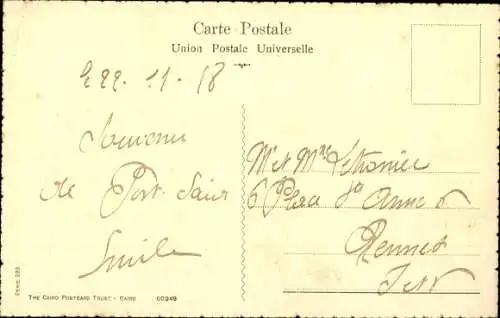 Carte Postale
Union Postale Universelle
Le 22-11-18
Souvenir
de Port-Saïd
Emile
Mr et Mme
6 Place Ste Anne
Rennes
I et V
THE CAIRO POSTCARD TRUST - CAIRO